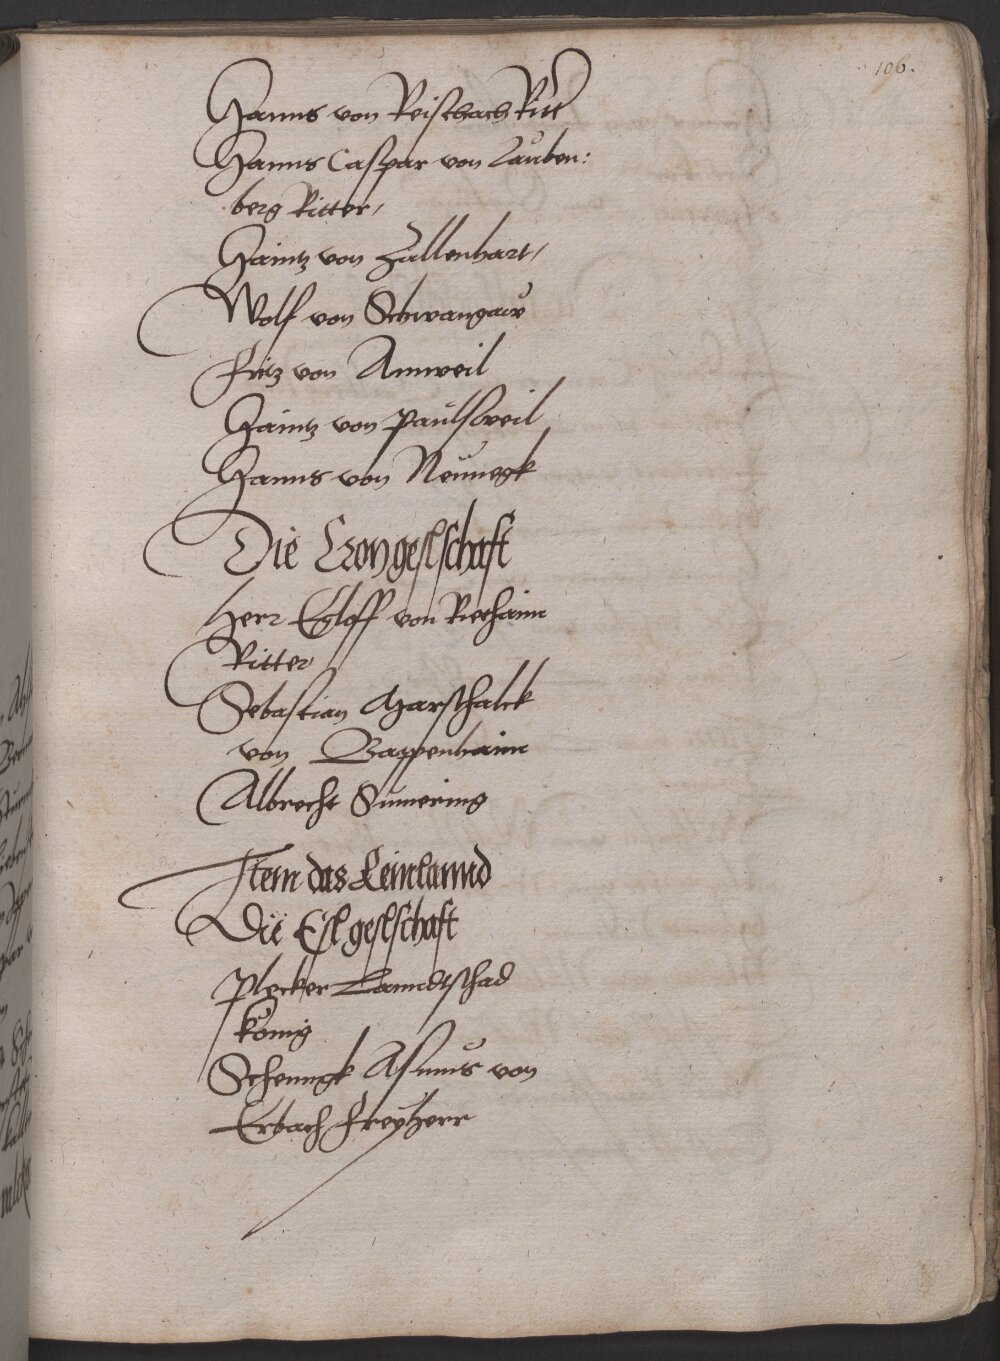 106.
Hanns von Reischach Ritt
Hanns Caspar von Lauben:
berg Ritter,
Haintz von Züllenhart,
Wolf von Schwangaw
Fritz von Annweil
Haintz von Paulsweil
Hanns von Neunegk
Die Cron geslschaft
Herr Egloff von Riethaim
Ritter
Sebastian Marschalck
von Bappenhaim
Albrecht Sumering
Item das Reinlannd
Die Esl geslschaft
Plecker Lanndtschad
König
Schenngk Asmus von
Erbach Freyherr